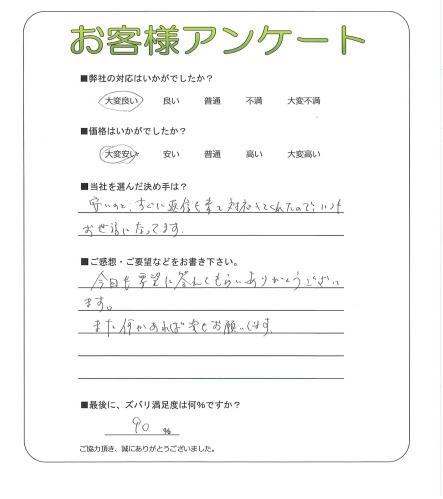 お客様アンケート
■弊社の対応はいかがでしたか？
大変良い 良い 普通 不満 大変不満
■価格はいかがでしたか？
大変安い 安い 普通 高い 大変高い
■当社を選んだ決め手は？
安いのと、すぐに返信も来て対応してくれたので、いつも
お世話になってます.
■ご感想・ご要望などをお書き下さい。
今回も要望に答えてもらいありがとうござい
ます。
また何かあれば お願いします.
■最後に、ズバリ満足度は何%ですか？
90 %
ご協力頂き、誠にありがとうございました。